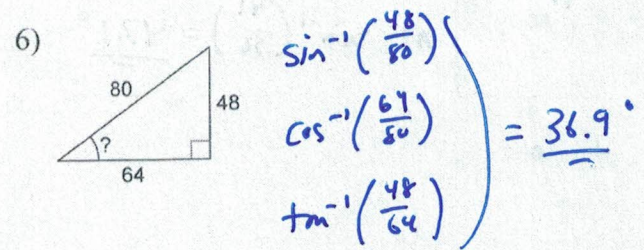 6)
80
48
?
64
sin⁻¹(48/80)
cos⁻¹(64/80)
tan⁻¹(48/64)
= 36.9°